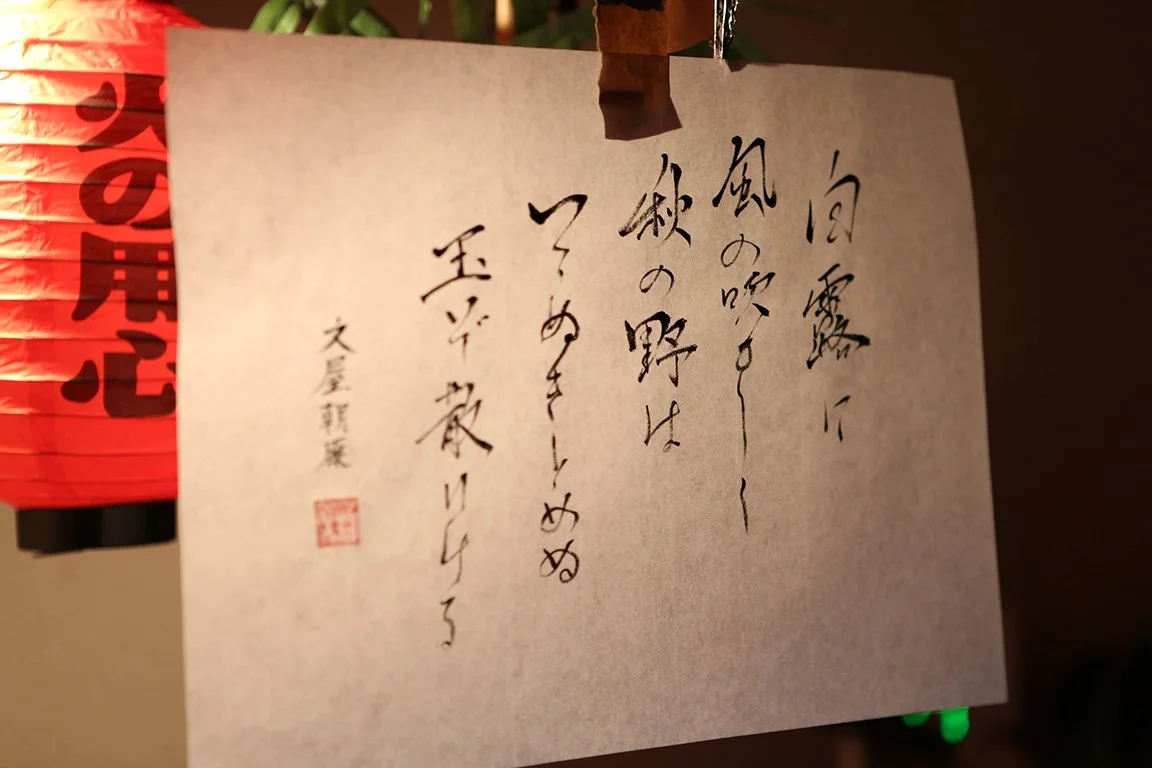 白露に
風の吹きしく
秋の野は
つらぬきとめぬ
玉ぞ散りける
文屋朝康
火の用心